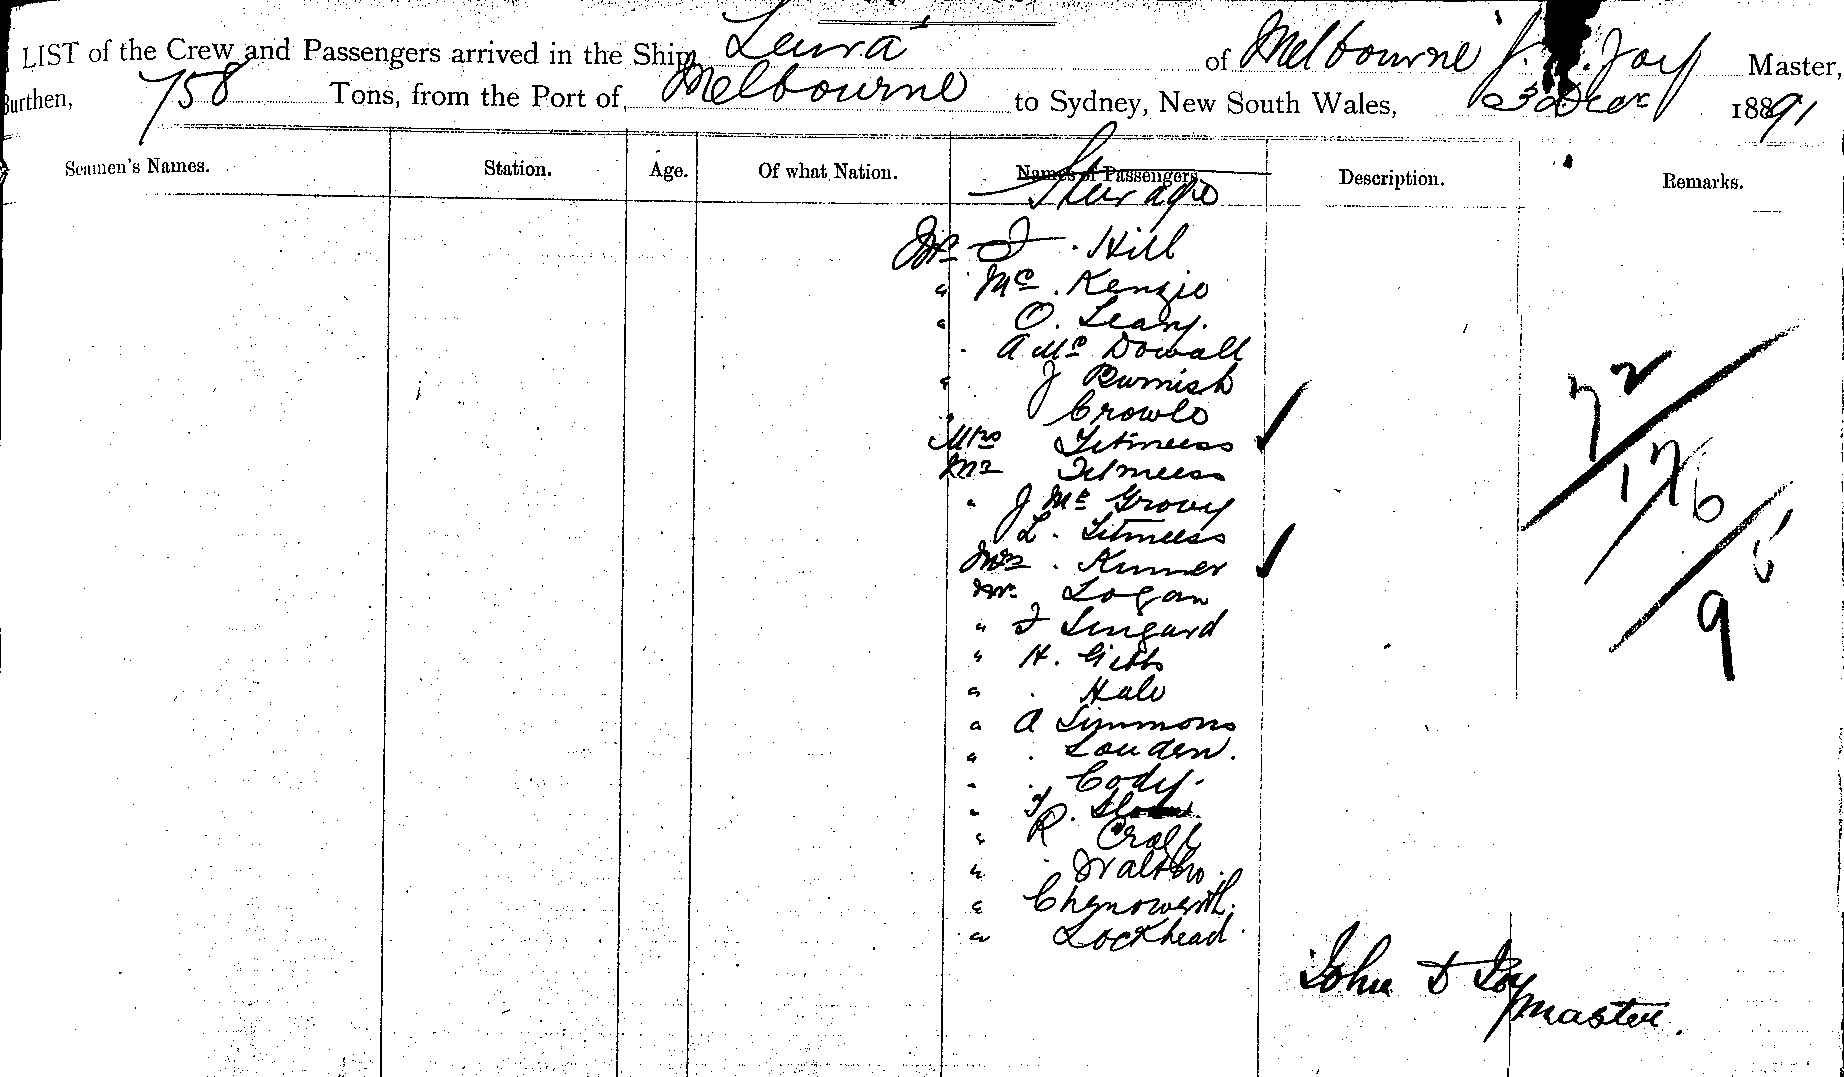 LIST of the Crew and Passengers arrived in the Ship Leura of Melbourne J. Joy Master,
Burthen, 758 Tons, from the Port of Melbourne to Sydney, New South Wales, 23 Decr 1891
Seamen's Names. Station. Age. Of what Nation. Names of Passengers. Description. Remarks.
Steerage
Mr J. Hill
" Mc. Kenzie
" O. Leary.
" A Mc Dowall
" J Burnish
" Crowle
Mrs Titmuss
Mr Titmuss
" J Mc Grovy
L. Titmuss
Mrs. Kinner
Mr. Logan
" J Lingard
" H. Gibbs
" . Hale
" A Simmons
" . Louden.
" . Cody.
" T.
" R Craft
" . Walsho.
" Chenoweth.
" Lockhead
72
176
5
9
John D Joy
Master.